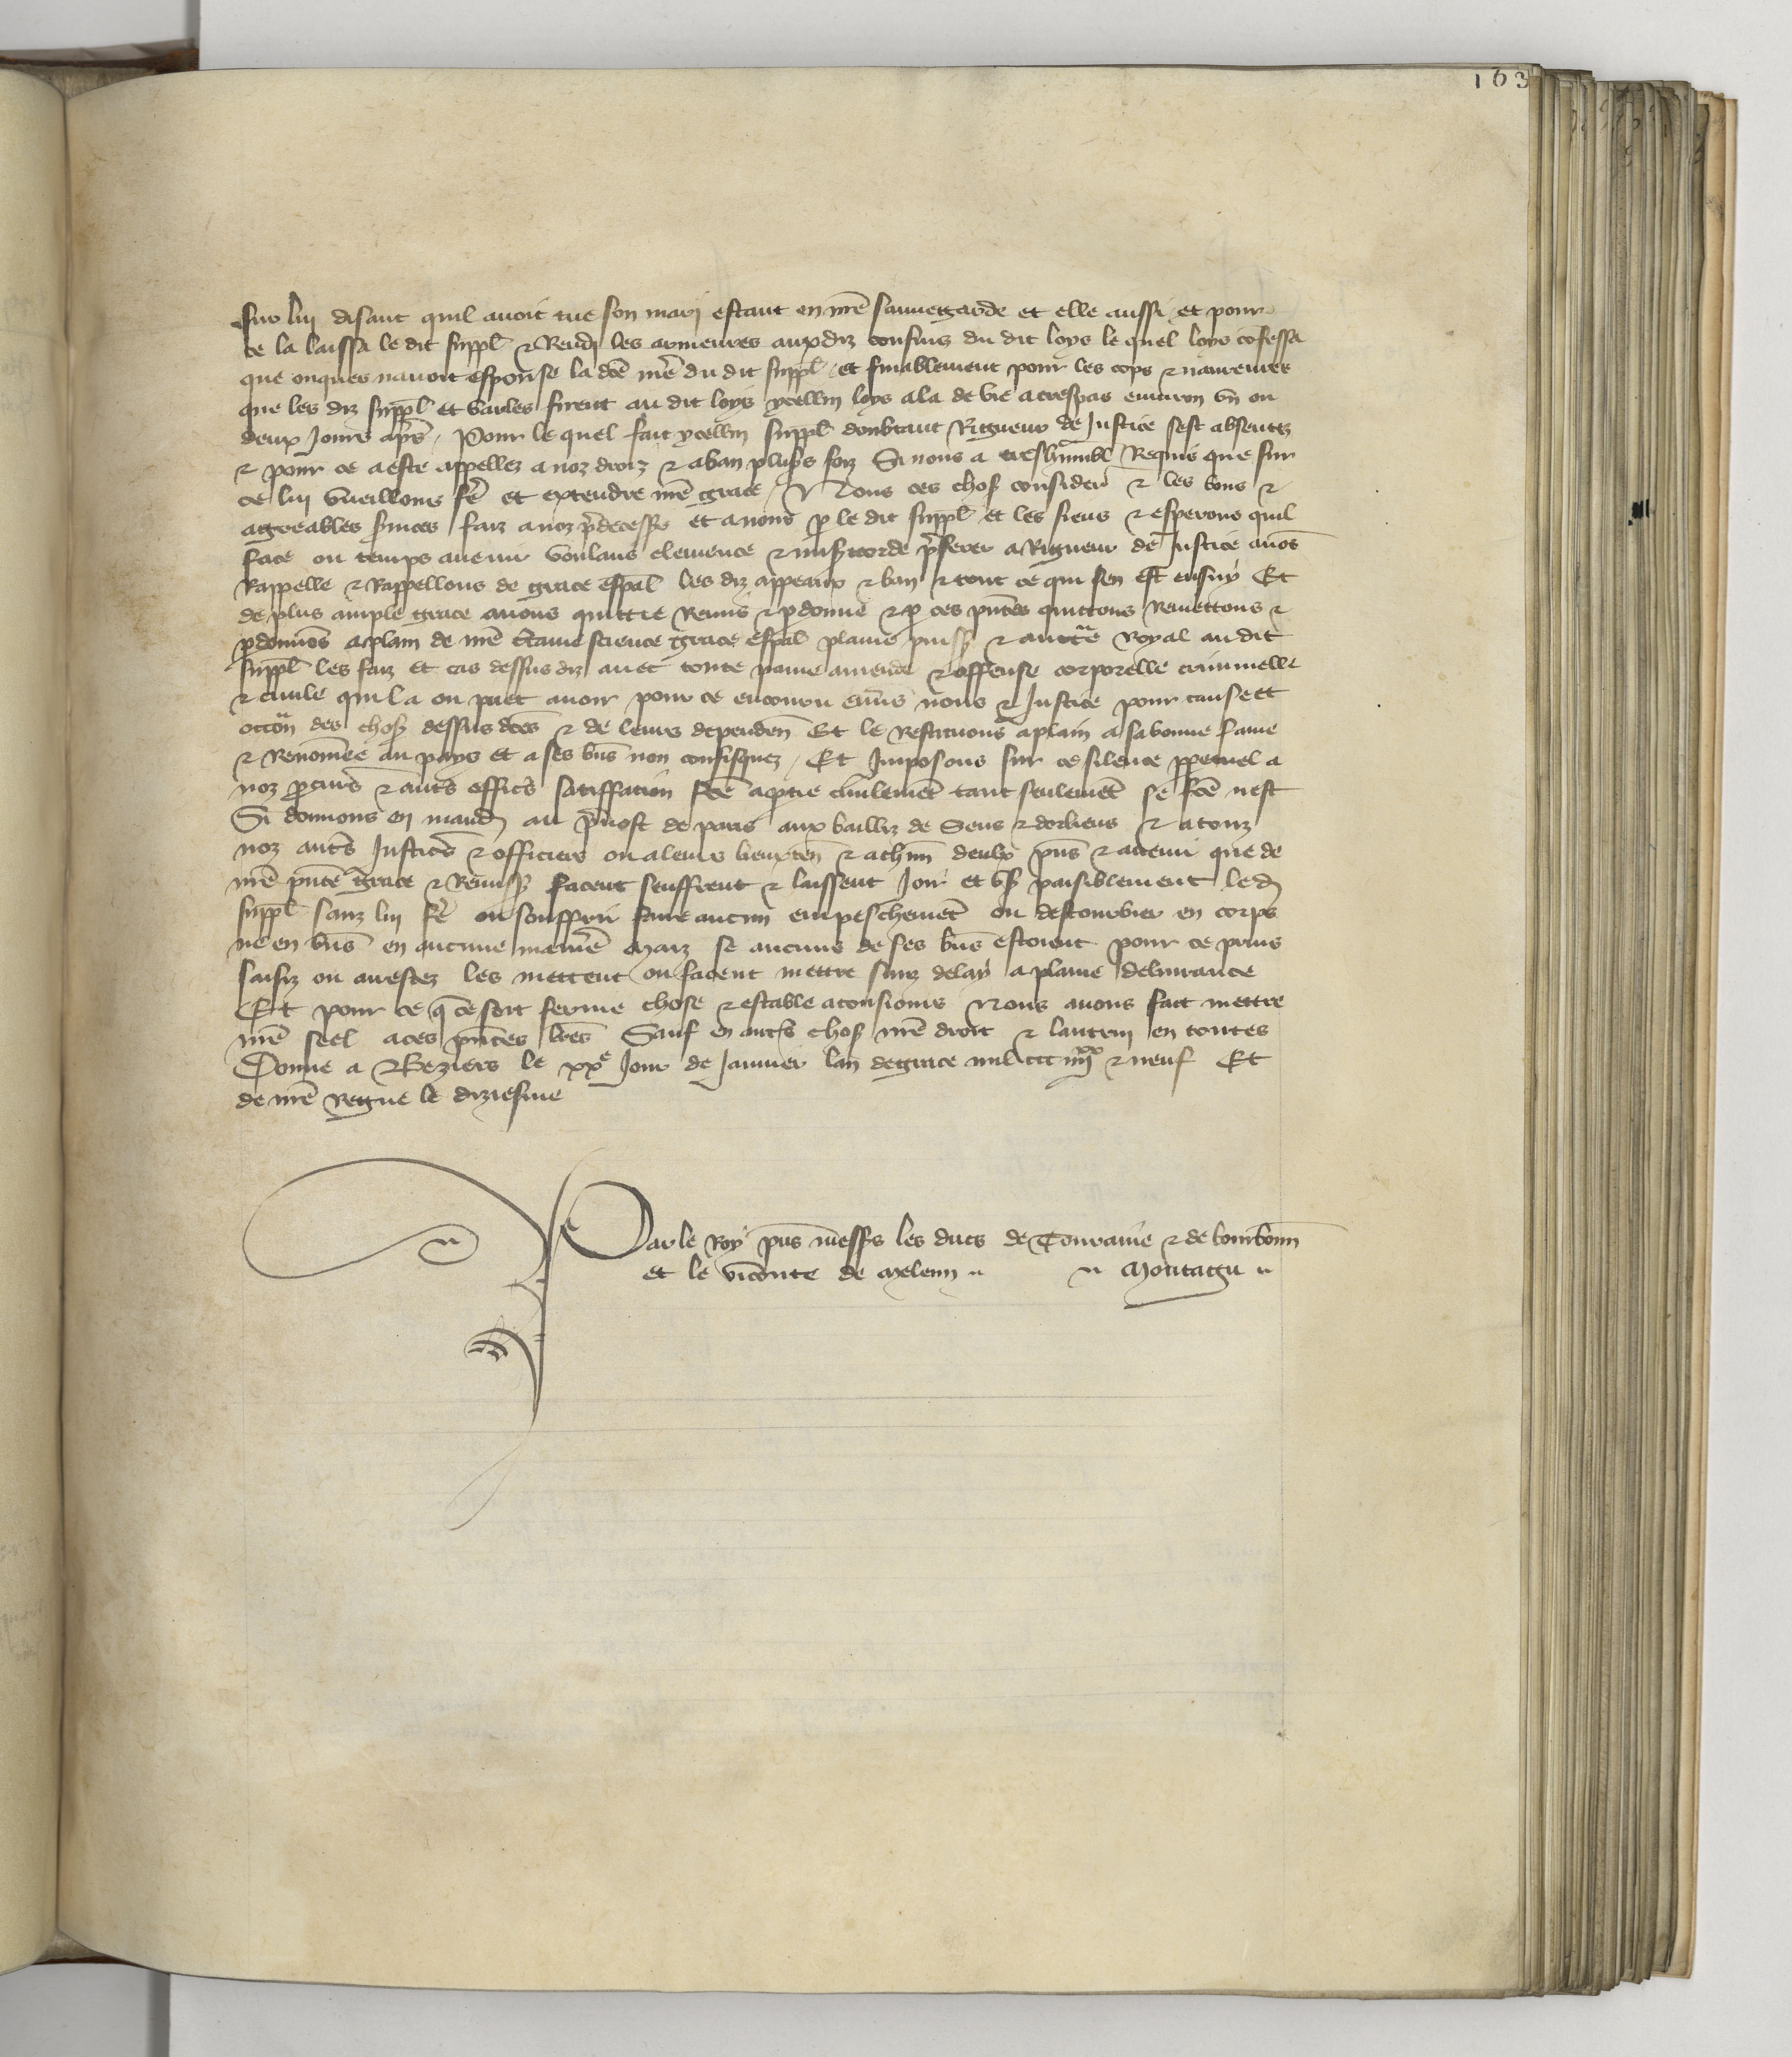 163
sur lui disant quil avoit tue son mari estant en nr̃e sauvegarde et elle aussi et pour
ce la laissa le dit suppl̃ & Rendi les armeures auxdiz cousins du dit loys le quel loys cõfessa
que onques navoit espouse la dc̃e mer̃e du dit suppl̃ et finablement pour les cops & navreures
que les diz suppl̃ et Vaules firent au dit loys ycellui loys ala de vie a trespas environ un ou
deux jours apr̃s / Pour le quel fait ycellui suppl̃ doubtant Rigueur de Justice sest absentez
& pour ce a este appellez a noz droiz & a ban plus̃s foiz Si nous a treshumbl̃ Requis que sur
ce lui vueillons fẽ et extendre nr̃e grace / Nous ces chos̃ consider̃ & les bons &
aggreables services faiz a noz p̃decess̃ et a nous p̱ le dit suppl̃ et les siens & esperons quil
face ou temps avenir voulans clemence & miscoorde p̃ferer a Rigueur de Justice avõs
Rappelle & Rappellons de grace esp̃al les diz appeaux & ban & tout ce qui sen est ensuy Et
de plus ample grace avons quittie Remis & p̱donne & p̱ ces pñtes quittons Remettons &
p̱donnõs a plain de nr̃e c̃taine science grace esp̃al plaine puiss̃ & auct̃e Royal au dit
suppl̃ les faiz et cas dessus diz avec toute paine amende & offense corporelle criminelle
& civile quil a ou puet avoir pour ce encouru enṽs nous & Justice pour cause et
occoñ des chos̃ dessus dc̃es & de leurs dependen̄ Et le Restituons a plain a sa bonne fame
& Renom̃ee au pays et a ses biñs non confisquez / Et Imposons sur ce silence p̱petuel a
noz p̱cur̃s & autr̃s offic̃s satiffacion fc̃e a p̱tie civilemẽt tant seulemẽt se fc̃e nest
Si donnons en mand̃ au p̃vost de paris aux bailliz de Sens & dorliens & a touz
noz autr̃s Justic̃s & officiers ou a leurs lieuxten̄ & a chũn deulx pñs & avenir que de
nr̃e pñte grace & Remiss̃ facent seuffrent & laissent Joir et us̃ paisiblement led̃
suppl̃ sanz lui fẽ ou souffrir faire aucun empeschemẽt ou destourbier en corps
ne en biñs en aucune manier̃e Maiz se aucuns de ses biñs estoient pour ce prins
saisiz ou arrestez les mettent ou facent mettre sanz delay a plaine delivrance
Et pour ce q̃ ce soit ferme chose & estable a tousiours Nous avons fait mettre
nr̃e seel a ces pñtes lr̃es Sauf en autr̃s chos̃ nr̃e droit & lautrui en toutes
Donne a Beziers le xxe Jour de Janvier lan de grace mil ccc iiijxx & neuf Et
de nr̃e Regne le diziesme
Par le Roy pñs mess̃s les ducs de Touraine & de bourboñn
et le viconte de Meleun
Montagu